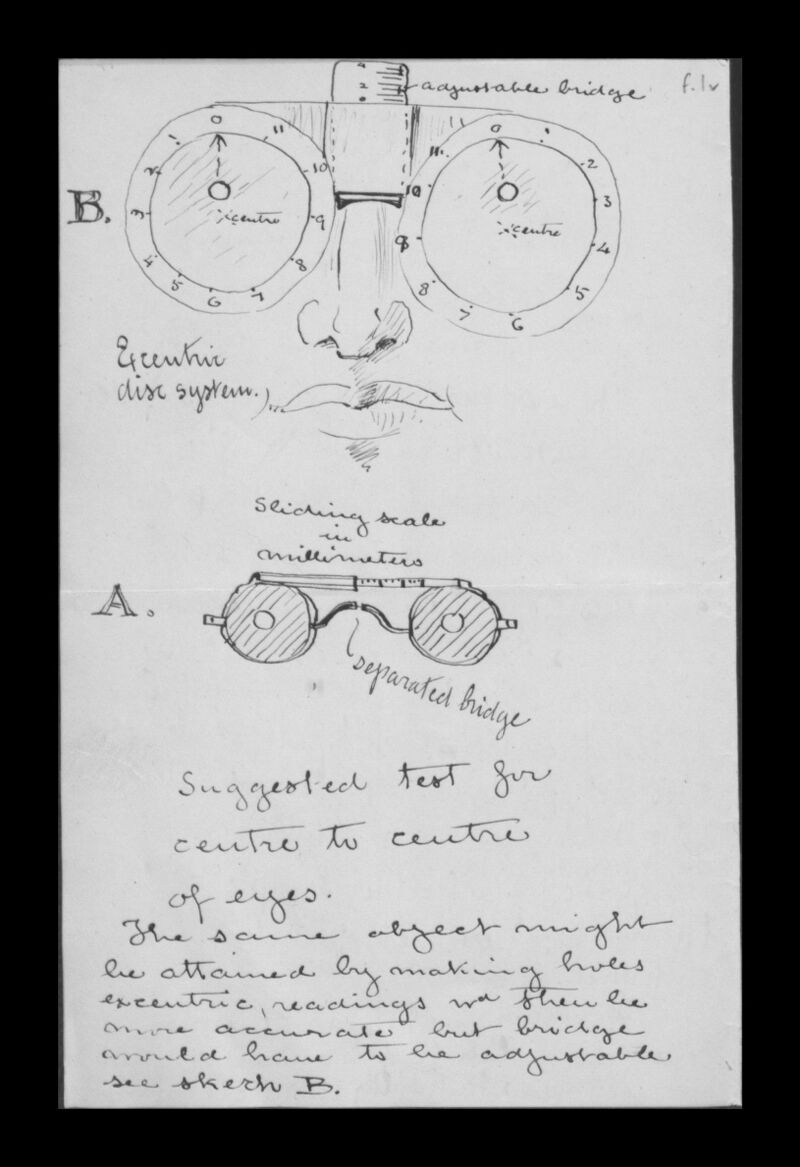 f.1v
4
2
0
adjustable bridge
B.
0
11
10
9
8
7
6
5
4
3
2
1
centre
0
1
2
3
4
5
6
7
8
9
10
11
11
centre
Excentric
disc system.
Sliding scale
in
millimeters
A.
separated bridge
Suggested test for
centre to centre
of eyes.
The same object might
be attained by making holes
excentric, readings wd then be
more accurate but bridge
would have to be adjustable
see skech B.